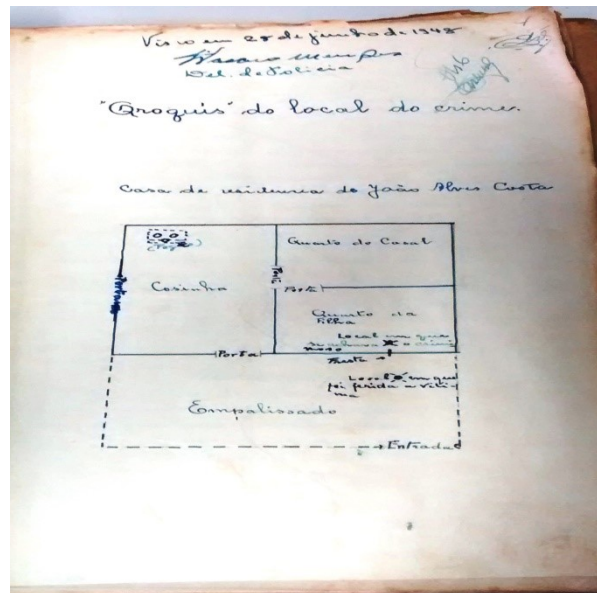 Visto em 28 de junho de 1948
Del. de Policia
"Croquis" do local do crime.
Casa de residencia de João Alves Costa
(Fogão)
Quarto do Casal
Porta
Cosinha
Porta
Quarto da
Filha
Local em que
se achava o crimi
noso
Porta
Fresta
Local em que
foi ferida a viti-
ma
Empalissado
Entrada